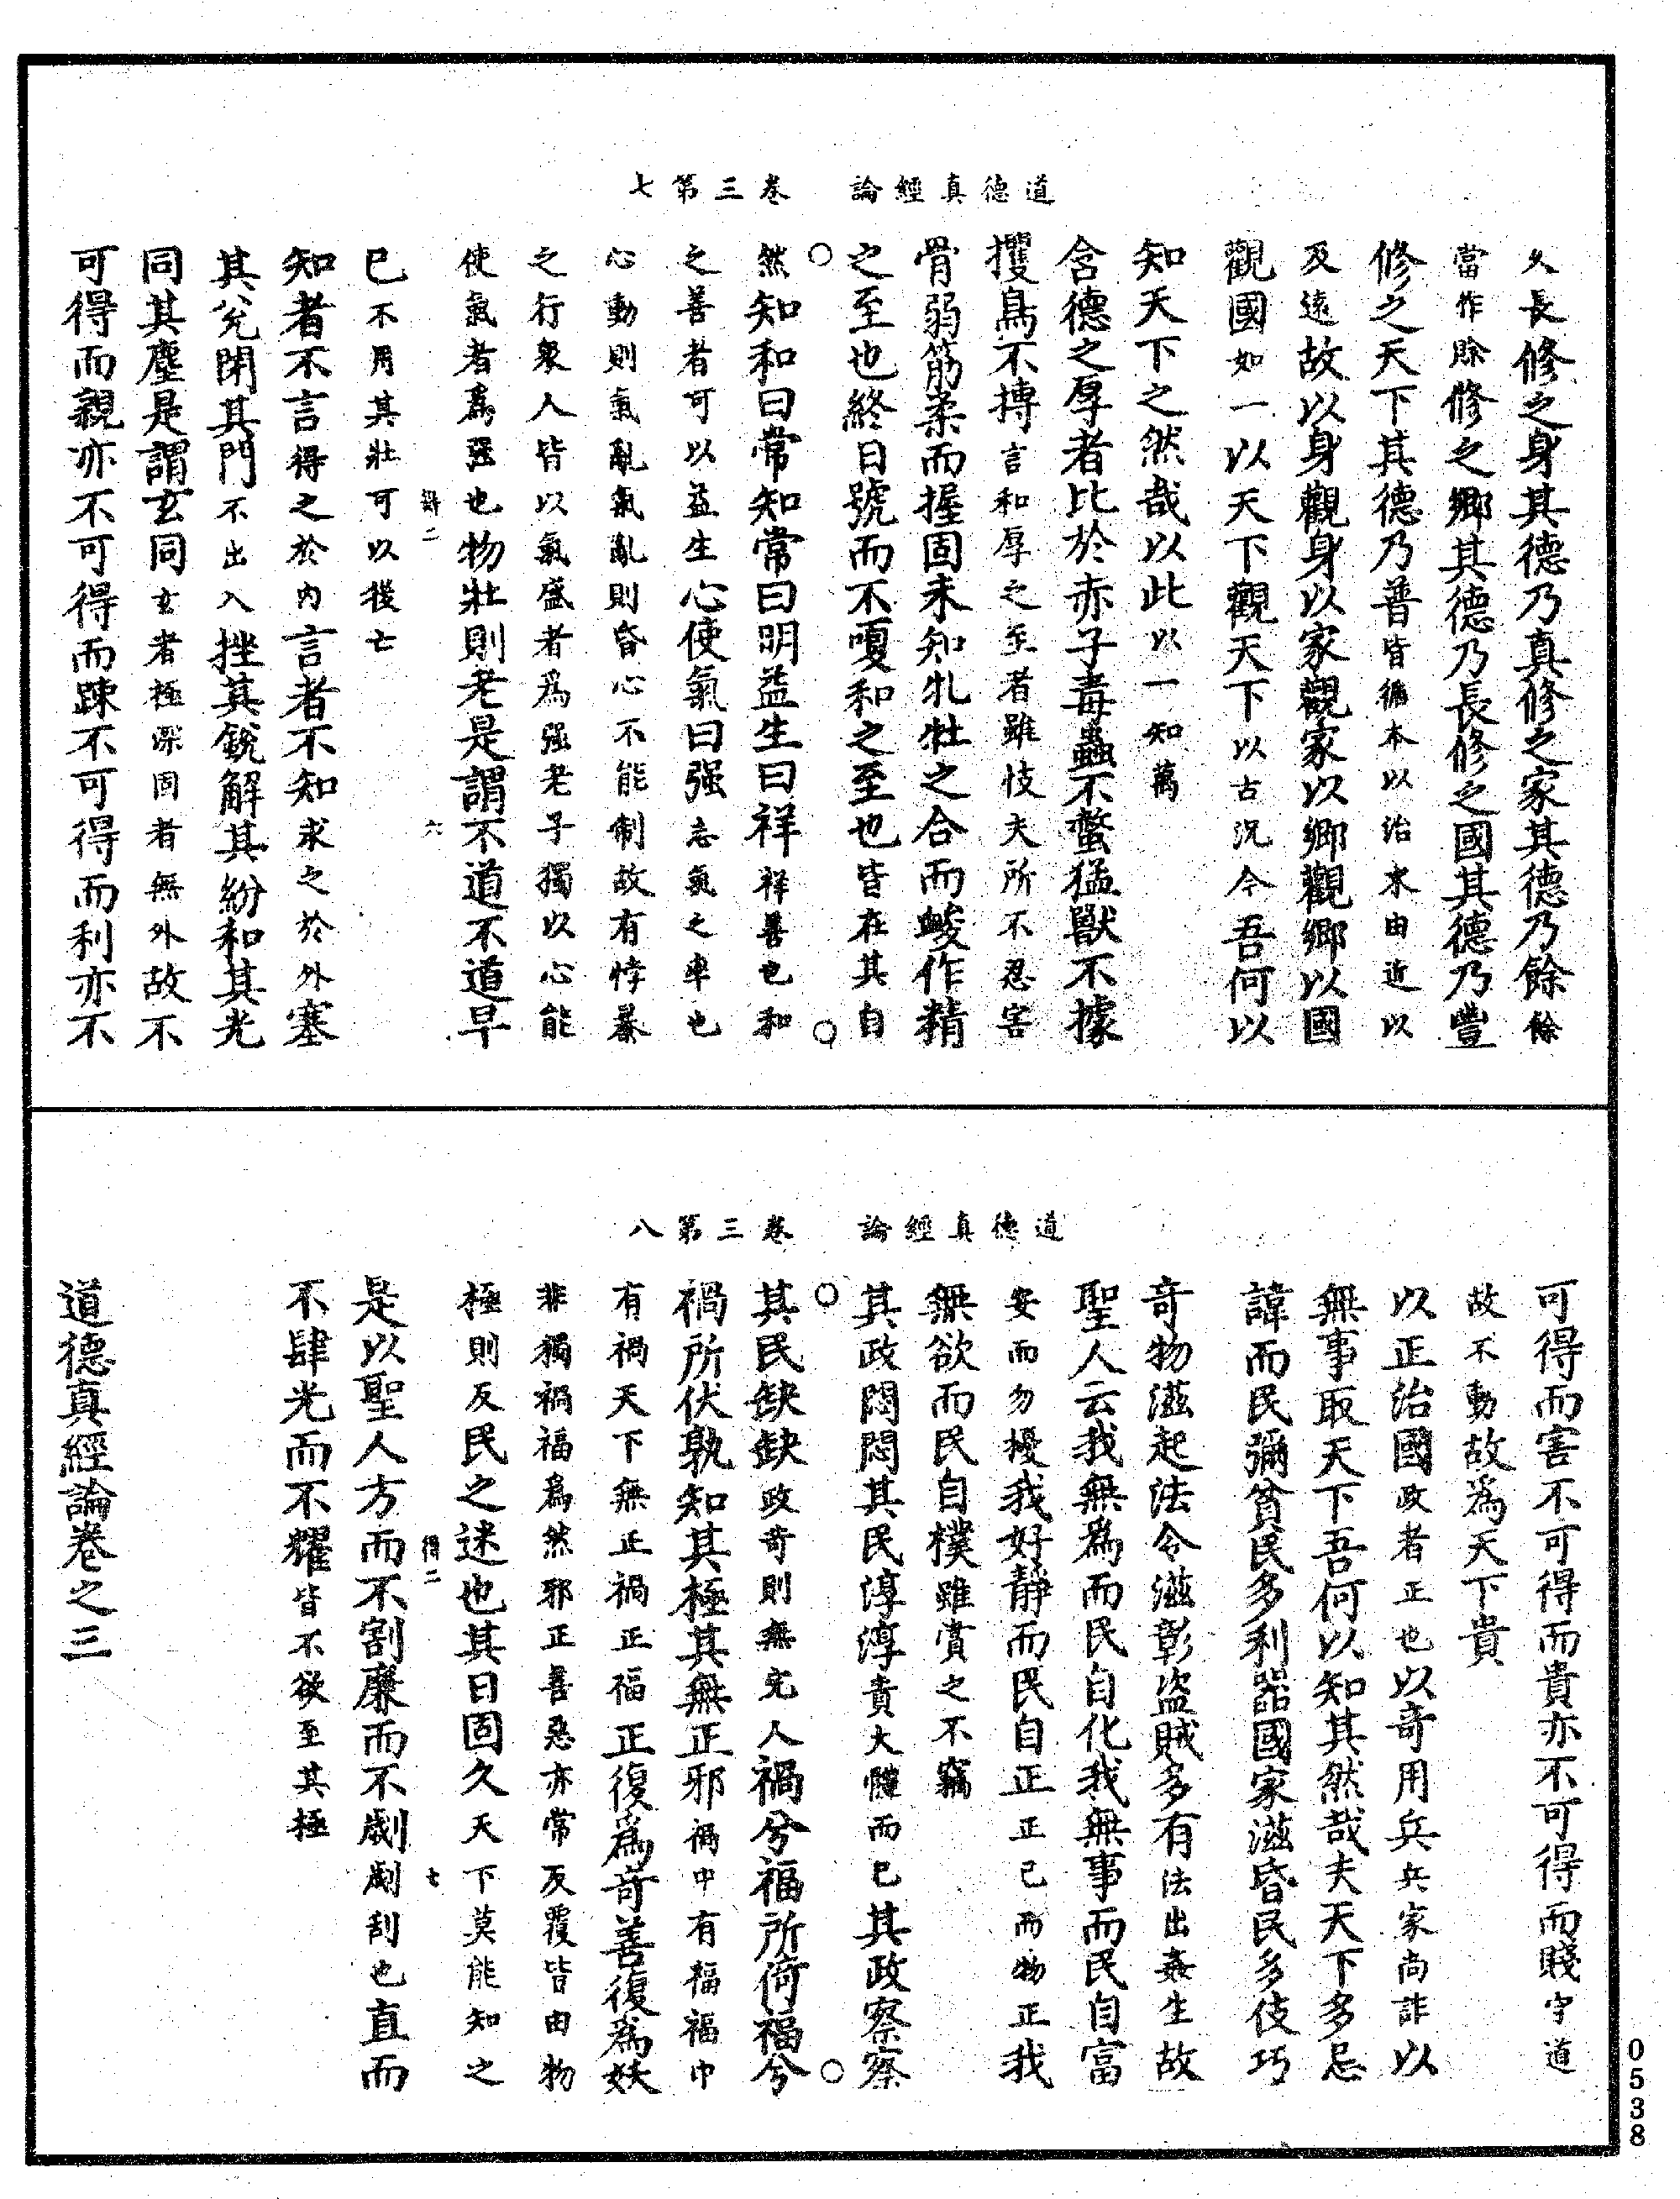 道德真經論　卷三第七
久長修之身其德乃真修之家其德乃餘餘
當作賖修之鄉其德乃長修之國其德乃豐
修之天下其德乃普皆循本以治末由近以
及遠故以身觀身以家觀家以鄉觀鄉以國
觀國如一以天下觀天下以古況今吾何以
知天下之然哉以此以一知萬
含德之厚者比於赤子毒蟲不螫猛獸不據
攫鳥不搏言和厚之至者雖忮夫所不忍害
骨弱筋柔而握固未知牝牡之合而䘒作精
之至也終日號而不嗄和之至也皆在其自
然知和曰常知常曰明益生曰祥祥善也和
之善者可以益生心使氣曰强志氣之率也
心動則氣亂氣亂則昏心不能制故有悖暴
之行衆人皆以氣盛者爲强老子獨以心能
使氣者爲强也物壯則老是謂不道不道早
已不用其壯可以後亡
知者不言得之於內言者不知求之於外塞
其兊閉其門不出入挫其銳解其紛和其光
同其塵是謂玄同玄者極深同者無外故不
可得而親亦不可得而踈不可得而利亦不
道德真經論　卷三第八
可得而害不可得而貴亦不可得而賤守道
故不動故爲天下貴
以正治國政者正也以奇用兵兵家尚詐以
無事取天下吾何以知其然哉夫天下多忌
諱而民彌貧民多利器國家滋昏民多伎巧
奇物滋起法令滋彰盜賊多有法出姦生故
聖人云我無爲而民自化我無事而民自富
安而勿擾我好靜而民自正正已而物正我
無欲而民自樸雖賞之不竊
其政悶悶其民淳淳責大體而已其政察察
其民缺缺政苛則無完人禍兮福所倚福兮
禍所伏孰知其極其無正邪禍中有福福中
有禍天下無正禍正福正復爲奇善復爲妖
非獨禍福爲然邪正善惡亦常反覆皆由物
極則反民之迷也其日固久天下莫能知之
是以聖人方而不割廉而不劌劌刮也直而
不肆光而不耀皆不欲至其極
道德真經論卷之三
0538